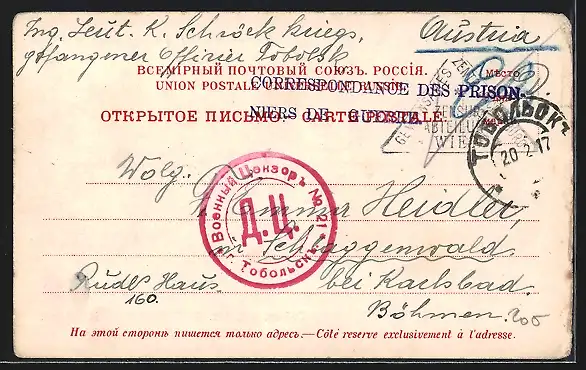 Ing. Leut. K. Schröck kriegs,
gefangener Offizier Tobolsk
Austria
ВСЕМІРНЫЙ ПОЧТОВЫЙ СОЮЗЪ. РОССІЯ.
UNION POSTALE UNIVERSELLE. RUSSIE
CORRESPONDANCE DES PRISON-
NIERS DE GUERRE.
Мѣсто
ОТКРЫТОЕ ПИСЬМО.—CARTE POSTALE.
ZENSUR
ABTEILUNG
WIEN
ТОБОЛЬСКЪ
20 2 17
Wolg.
Emma Heidler
Военный Цензоръ № 21
Д.Ц.
г. Тобольскъ
in Schlaggenwald
Rudls Haus
bei Karlsbad
160.
Böhmen.
200
На этой сторонѣ пишется только адресъ.—Côté reserve exclusivement à l'adresse.